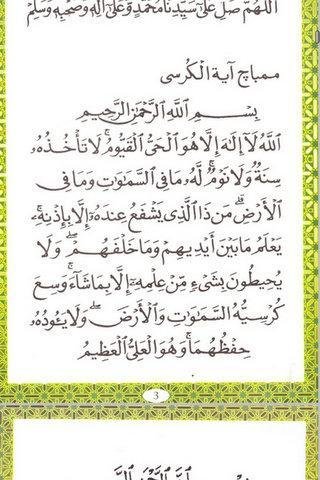 اَللّٰهُمَّ صَلِّ عَلَىٰ سَيِّدِنَا مُحَمَّدٍ وَعَلَىٰ آلِهِ وَصَحْبِهِ وَسَلِّمْ
ممباچ آية الكرسى
بِسْمِ اللَّهِ الرَّحْمَٰنِ الرَّحِيمِ
اللَّهُ لَآ إِلَٰهَ إِلَّا هُوَ الْحَىُّ الْقَيُّومُ ۚ لَا تَأْخُذُهُۥ
سِنَةٌ وَلَا نَوْمٌ ۚ لَّهُۥ مَا فِى السَّمَٰوَٰتِ وَمَا فِى
الْأَرْضِ ۗ مَن ذَا الَّذِى يَشْفَعُ عِندَهُۥٓ إِلَّا بِإِذْنِهِۦ ۚ
يَعْلَمُ مَا بَيْنَ أَيْدِيهِمْ وَمَا خَلْفَهُمْ ۖ وَلَا
يُحِيطُونَ بِشَىْءٍ مِّنْ عِلْمِهِۦٓ إِلَّا بِمَا شَآءَ ۚ وَسِعَ
كُرْسِيُّهُ السَّمَٰوَٰتِ وَالْأَرْضَ ۖ وَلَا يَـُٔودُهُۥ
حِفْظُهُمَا ۚ وَهُوَ الْعَلِىُّ الْعَظِيمُ
3